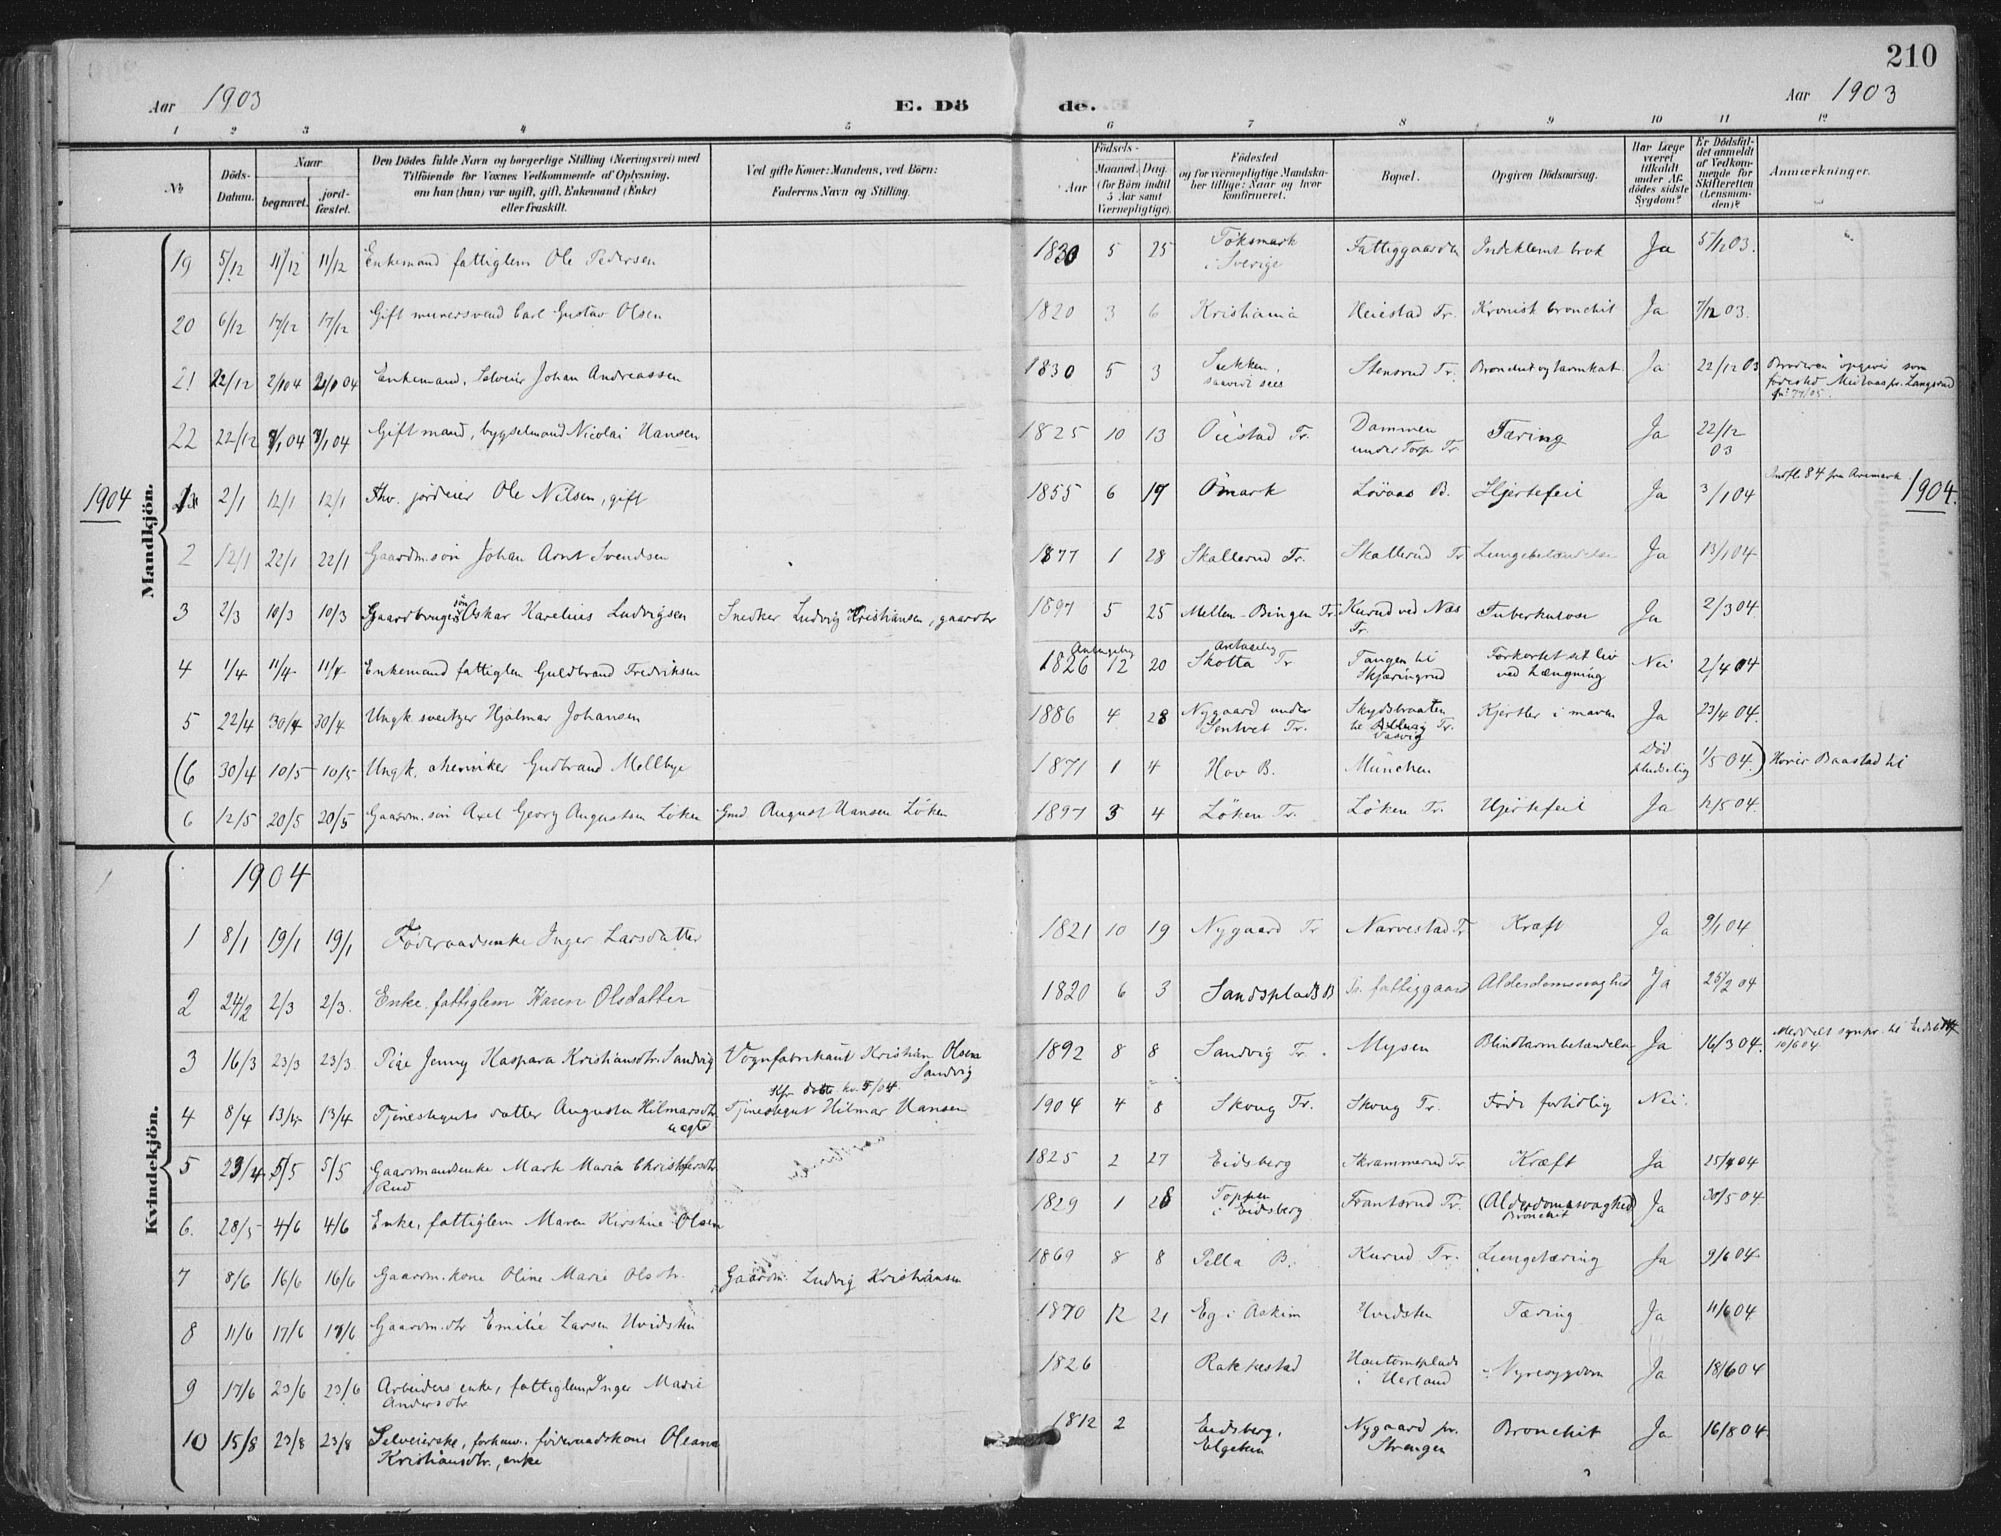 210
Aar 1903
E. Dö
de.
Aar 1903
1 2 3 4 5 6 7 8 9 10 11 12
No
Döds-
Datum.
Naar
begravet.
jord-
fæstet.
Den Dödes fulde Navn og borgerlige Stilling (Næringsvei) med
Tilföiende for Voxnes Vedkommende af Oplysning,
om han (hun) var ugift, gift, Enkemand (Enke)
eller fraskilt.
Ved gifte Koner: Mandens, ved Börn:
Faderens Navn og Stilling.
Födsels-
Aar
Maaned. Dag.
(for Börn indtil
5 Aar samt
Værnepligtige).
Födested
og for værnepligtige Mandska-
ber tillige: Naar og hvor
konfirmeret.
Bopæl.
Opgiven Dödsaarsag.
Har Læge
været
tilkaldt
under Af-
dödes sidste
Sygdom?
Er Dödsfal-
det anmeldt
af Vedkom-
mende for
Skifteretten
(Lensman-
den)?
Anmærkninger.
Mandkjön.
19 5/12 11/12 11/12 Enkemand fattiglem Ole Pedersen 1830 5 25 Töksmark
i Sverige Fattiggaarden Indeklemt brok Ja 5/12 03.
20 6/12 17/12 17/12 Gift murersvend Carl Gustav Olsen 1820 3 6 Kristiania Heiestad Tr. Kronisk bronchit Ja 7/12 03.
21 22/12 2/1 04 2/1 04 Enkemand, Selveier Johan Andreassen 1830 5 3 Stensrud Tr. Ja 22/12 03 som
födested
22 22/12 04 04 Gift mand, bygselmand Nicolai Hansen 1825 10 13 Öiestad Tr. Dammen
under Torp Tr. Tæring Ja 22/12
03
1904 1 2/1 12/1 12/1 Fhv. jordeier Ole Nilsen, gift 1855 6 17 Ömark Lövaas B. Hjertefeil Ja 3/1 04 Indfl. 84 fra Aremark 1904.
2 12/1 22/1 22/1 Gaardm.sön Johan Arnt Svendsen 1877 1 28 Skallerud Tr. Skallerud Tr Lungebetændelse Ja 13/1 04
3 2/3 10/3 10/3 Gaardbruger sön Oskar Karelius Ludvigsen Snedker Ludvig Kristiansen, gaardbr 1897 5 25 Mellem-Bingen Tr Kurud ved Næs
Tr. Tuberkulose Ja 2/3 04.
4 1/4 11/4 11/4 Enkemand fattiglem Guldbrand Fredriksen Antagelig
1826 12 20 Antagelig
Skotta Tr Tangen til
Skjæringrud Forkortet sit liv
ved hængning Nei 2/4 04
5 22/4 30/4 30/4 Ungk sveitzer Hjalmar Johansen 1886 4 28 Nygaard under
Sentvet Tr. Skydsbraaten
Tr. Kjertler i maven Ja 23/4 04.
(6 30/4 10/5 10/5 Ungk. chemiker Gudbrand Mellbye 1871 1 4 Hov B. München Död
pludselig 1/5 04.) Hörer Baastad til
6 12/5 20/5 20/5 Gaardm.sön Axel Georg Augustsen Löken Gmd August Hansen Löken 1897 3 4 Löken Tr. Löken Tr. Hjertefeil Ja 12/5 04.
Kvindekjön.
1904
1 8/1 19/1 19/1 Föderaadsenke Inger Larsdatter 1821 10 19 Nygaard Tr Narvestad Tr Kræft Ja 9/1 04
2 24/2 2/3 2/3. Enke, fattiglem Karen Olsdatter 1820 6 3 Sandsplads B Tr. fattiggaard Alderdomssvaghed Ja 25/2 04
3 16/3 23/3 23/3 Pige Jenny Kaspara Kristiansdtr. Sandvig Vognfabrikant Kristian Olsen
Sandvig 1892 8 8 Sandvig Tr. Mysen Blindtarmbetændelse Ja 16/3 04. 10/6 04
4 8/4 13/4 13/4 Tjenestguts datter Augusta Hilmarsdtr
ægte Tjenestegut Hilmar Hansen 1904 4 8 Skoug Tr. Skoug Tr. Födt fortidlig Nei.
5 23/4 5/5 5/5 Gaardmandsenke Marte Maria Christofersdtr
Rud 1825 2 27 Eidsberg Skrammerud Tr. Kræft Ja 25/4 04
6. 28/5 4/6 4/6 Enke, fattiglem Maren Kirstine Olsen 1829 1 28 Toppen
i Eidsberg Frantsrud Tr. (Alderdomssvaghed)
Bronchit Ja 30/5 04
7 8/6 16/6 16/6 Gaardm.kone Oline Marie Olsdtr. Gaardm. Ludvig Kristiansen 1869 8 8 Pella B. Kurud Tr. Lungetæring Ja 9/6 04.
8 11/6 17/6 17/6 Gaardm.dtr Emilie Larsen Hvidsten 1870 12 21 Eg i Askim Hvidsten Tæring Ja 11/6 04
9 17/6 23/6 23/6 Arbeiders enke, fattiglem Inger Marie
Andersdtr 1826 Rakkestad i Herland Nyresygdom Ja 18/6 04
10 15/8 23/8 23/8 Selveierske, forhenv. föderaadskone Oleana
Kristiansdtr., enke 1812 2 Eidsberg, Nygaard pr.
Strengen Bronchit Ja 16/8 04.